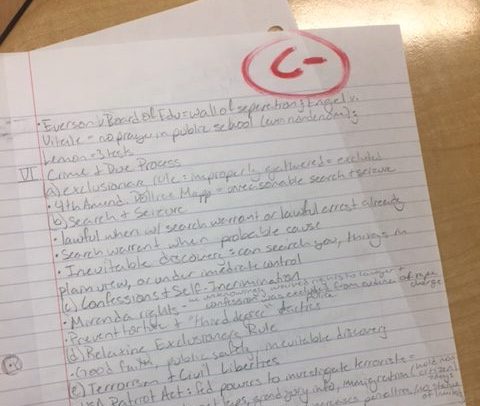 C-
• Everson v Board of Edu = wall of seperation; Engel v.
Vitale = no prayer in public school (even nondenom);
Lemon = 3 tests
VI Crime & Due Process
a) exclusionary rule: improperly gathered = excluded
• 4th Amend. Dollree Mapp = unreasonable search + seizure
b) Search & Seizure
• lawful when w/ search warrant or lawful arrest already
• Search warrant when probable cause
• Inevitable discovery: can search you, things in
plain view, or under imediate control
c) Confessions & Self-Incrimination
• Miranda rights - waived rights to lawyer +
confession was excluded from
charge
• Prevent torture + "third degree" tactics
police
d) Relaxing Exclusionary Rule
• Good faith, public safety, inevitable discovery
e) Terrorism & Civil Liberties
USA Patriot Act: fed powers to investigate terrorists =
taps, grand jury info, immigration (hold non
citizens
days
increases penalties, no statue
of